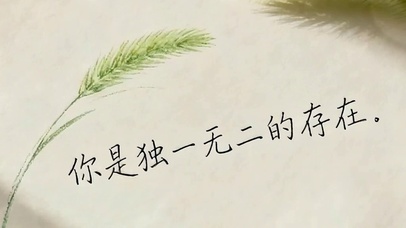 你是独一无二的存在。